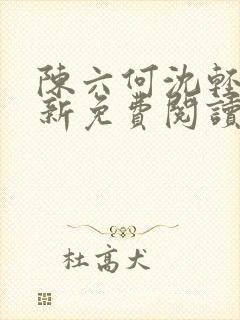 陳六何沈輕
新免費閱讀
杜高犬